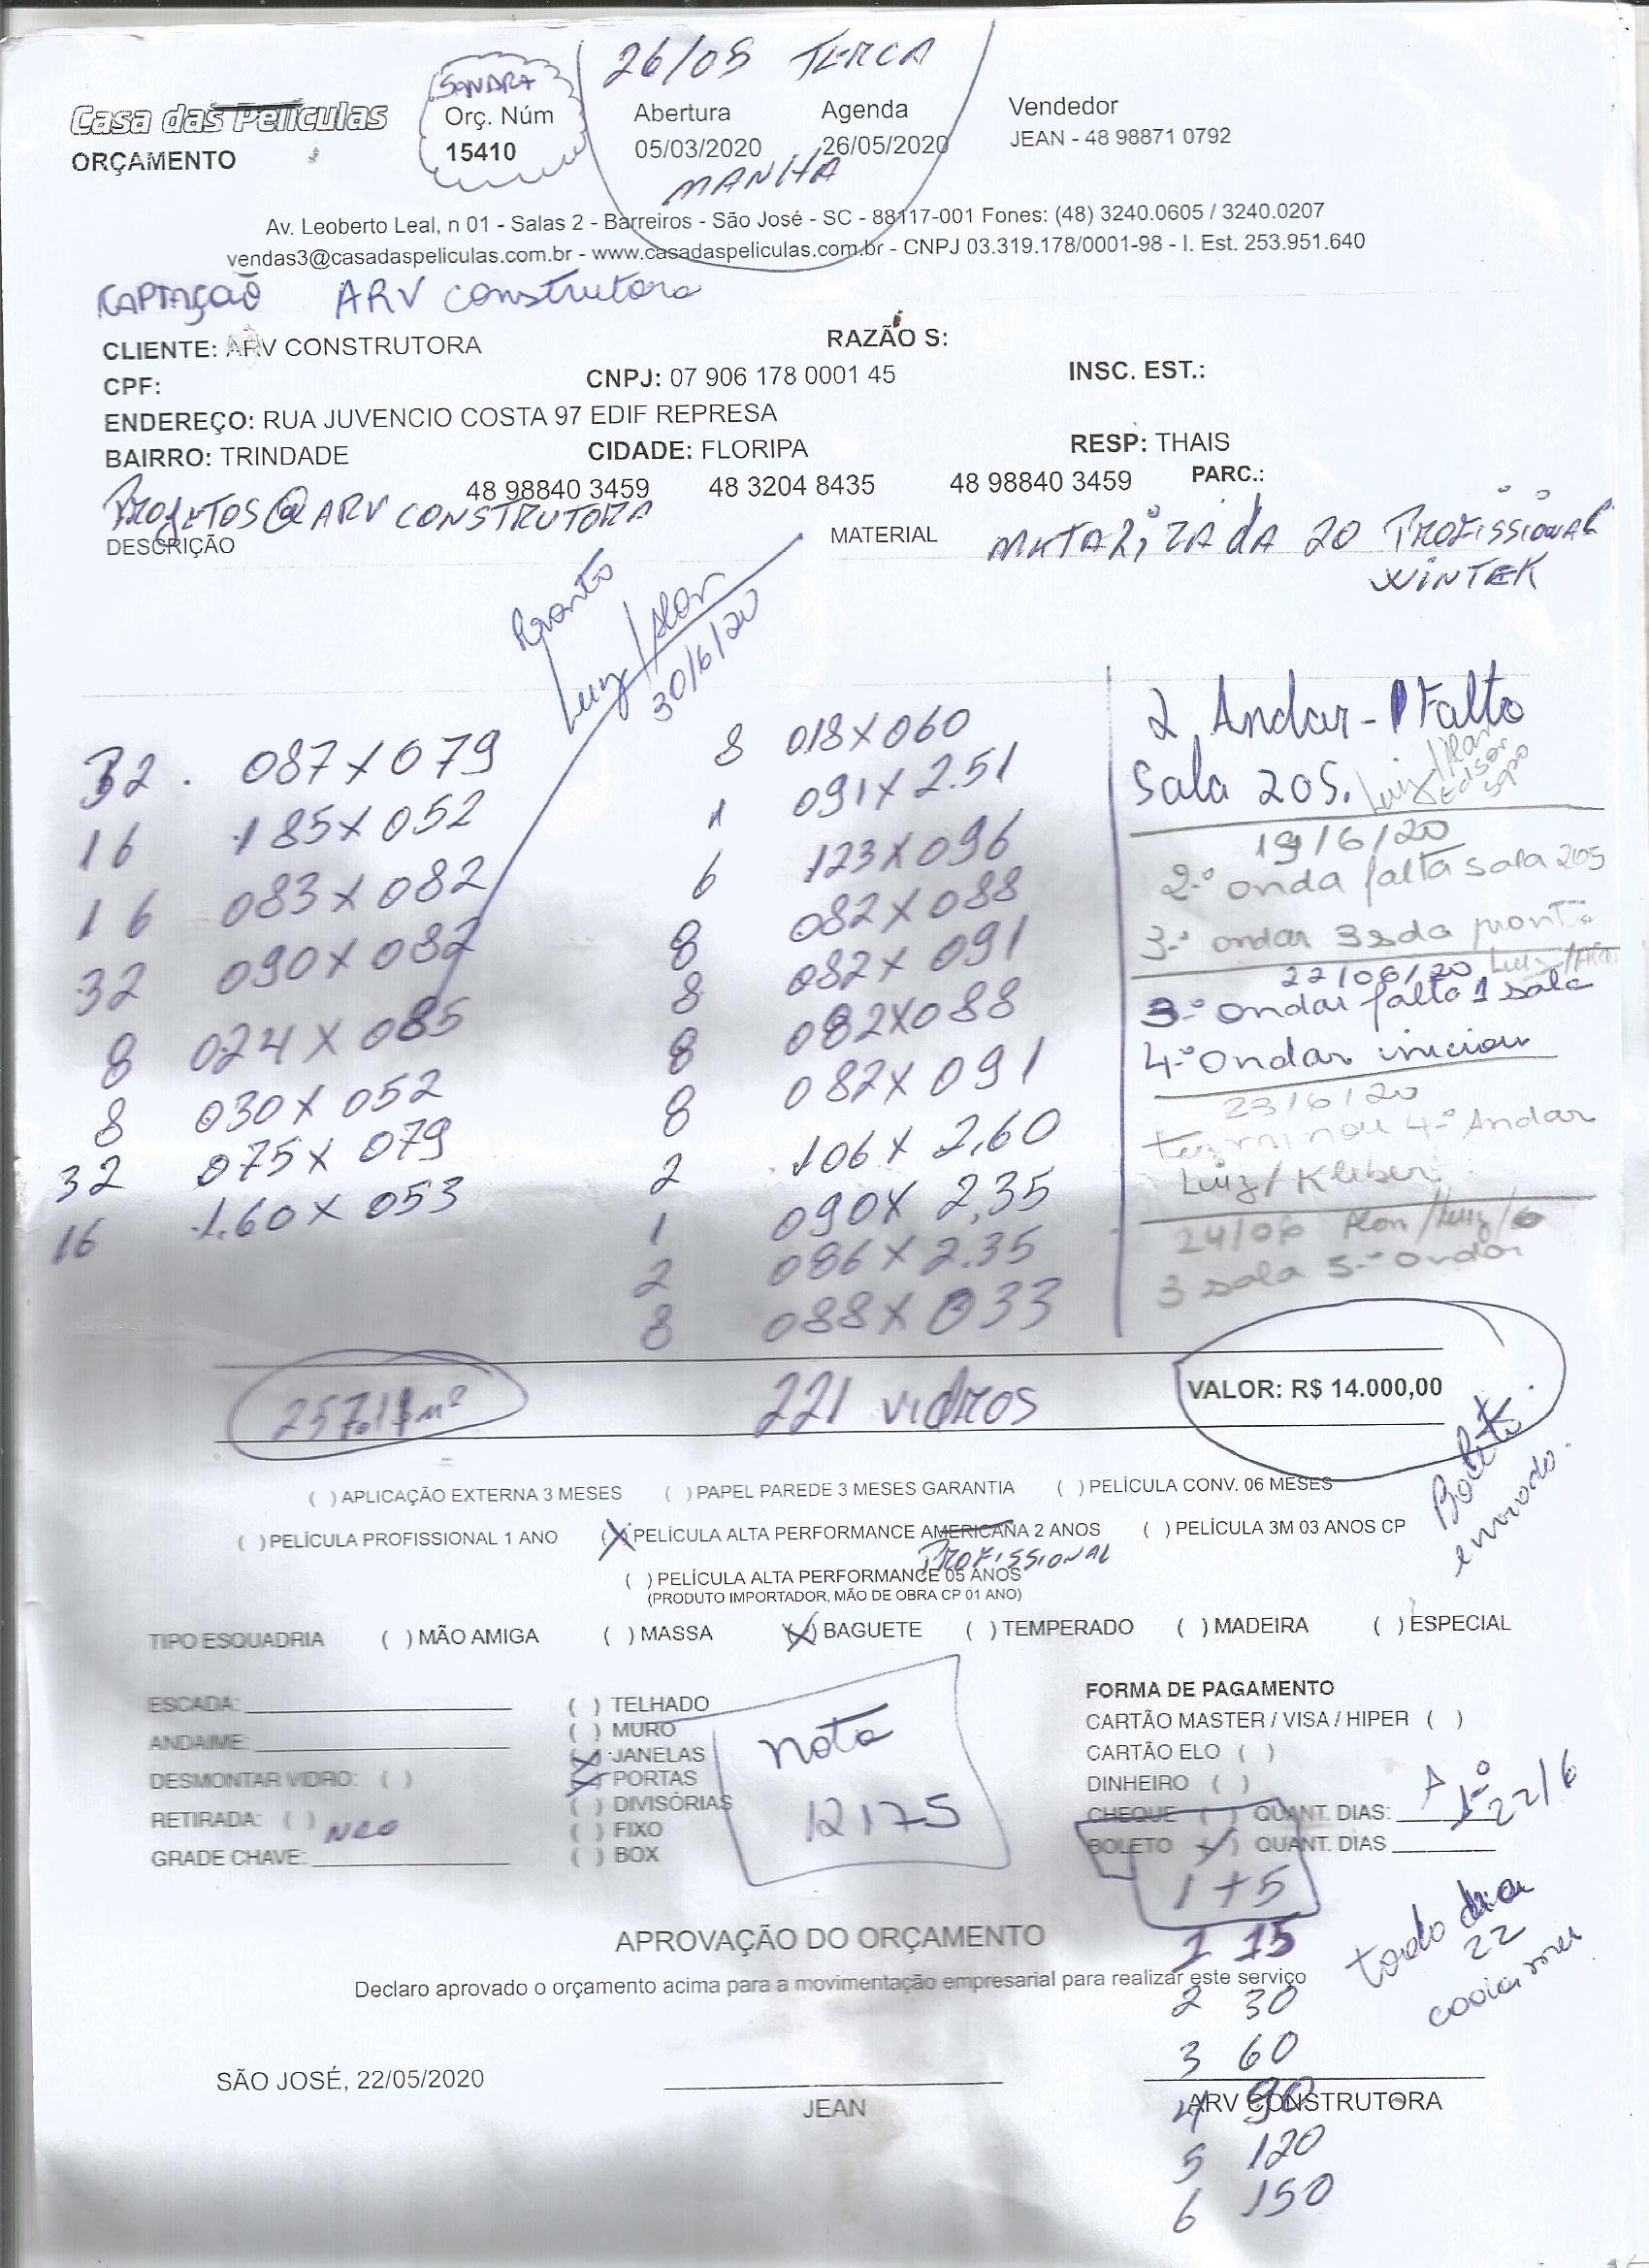 26/05 TERCA
SANDRA
Casa das Películas
Orç. Núm Abertura Agenda Vendedor
ORÇAMENTO 15410 05/03/2020 26/05/2020 JEAN - 48 98871 0792
MANHA
Av. Leoberto Leal, n 01 - Salas 2 - Barreiros - São José - SC - 88117-001 Fones: (48) 3240.0605 / 3240.0207
vendas3@casadaspeliculas.com.br - www.casadaspeliculas.com.br - CNPJ 03.319.178/0001-98 - I. Est. 253.951.640
CAPTAÇÃO ARV construtora
CLIENTE: ARV CONSTRUTORA RAZÃO S:
CPF: CNPJ: 07 906 178 0001 45 INSC. EST.:
ENDEREÇO: RUA JUVENCIO COSTA 97 EDIF REPRESA
BAIRRO: TRINDADE CIDADE: FLORIPA RESP: THAIS
48 98840 3459 48 3204 8435 48 98840 3459 PARC.:
PROJETOS@ARV CONSTRUTORA
DESCRIÇÃO MATERIAL METALIZADA 20 PROFISSIONAL
WINTEK
Pronto
Luiz/Alan
30/6/20
32. 087x079
16 185x052
16 083x082
32 090x082
8 024x085
8 030x052
32 075x079
16 1.60x053
8 018x060
1 091x2.51
6 123x096
8 082x088
8 082x091
8 082x088
8 082x091
2 106x2,60
1 090x2,35
2 086x2.35
8 088x033
2 Andar - falto
Sala 205.
19/6/20
2º anda falta sala 205
3º andar 3 sda pronta
22/06/20 Luiz/Alan
3º andar falto 1 sala
4º andar iniciou
23/6/20
terminou 4º Andar
Luiz/Kleber
24/06 Alan/Luiz/
3 sala 5º andar
m² 221 vidros VALOR: R$ 14.000,00
Boleto
enviado.
( ) APLICAÇÃO EXTERNA 3 MESES ( ) PAPEL PAREDE 3 MESES GARANTIA ( ) PELÍCULA CONV. 06 MESES
( ) PELÍCULA PROFISSIONAL 1 ANO (X) PELÍCULA ALTA PERFORMANCE AMERICANA 2 ANOS ( ) PELÍCULA 3M 03 ANOS CP
PROFISSIONAL
( ) PELÍCULA ALTA PERFORMANCE 05 ANOS
(PRODUTO IMPORTADOR, MÃO DE OBRA CP 01 ANO)
TIPO ESQUADRIA ( ) MÃO AMIGA ( ) MASSA (X) BAGUETE ( ) TEMPERADO ( ) MADEIRA ( ) ESPECIAL
ESCADA:
ANDAIME:
DESMONTAR VIDRO: ( )
RETIRADA: ( ) NÃO
GRADE CHAVE:
( ) TELHADO
( ) MURO
(X) JANELAS
(X) PORTAS
( ) DIVISÓRIAS
( ) FIXO
( ) BOX
nota
12175
FORMA DE PAGAMENTO
CARTÃO MASTER / VISA / HIPER ( )
CARTÃO ELO ( )
DINHEIRO ( )
CHEQUE ( ) QUANT. DIAS:
BOLETO (X) QUANT. DIAS
1º 22/6
1+5
todo dia
22
APROVAÇÃO DO ORÇAMENTO
Declaro aprovado o orçamento acima para a movimentação empresarial para realizar este serviço
1 15
2 30
3 60
4 90
5 120
6 150
SÃO JOSÉ, 22/05/2020
JEAN ARV CONSTRUTORA